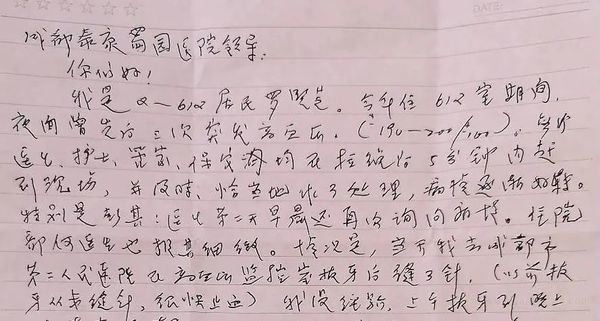 DATE:
成都泰康蜀园医院领导:
你们好!
我是2-612居民罗贤芑。今年住612室期间,
夜间曾先后三次突发高血压,(190-200/100)。
医生、护士、管家、保安等均在拉绳后5分钟内赶
到现场,并及时、恰当地作了处理,病情逐渐好转。
特别是彭其:医生第二天早晨还再次询问病情。住院
部何医生也极其细致。情况是,当天我去成都市
第二人民医院在高血压监控室拔牙后缝了针,(以前拔
牙从未缝针,很快止血)我没经验,上午拔牙到晚上